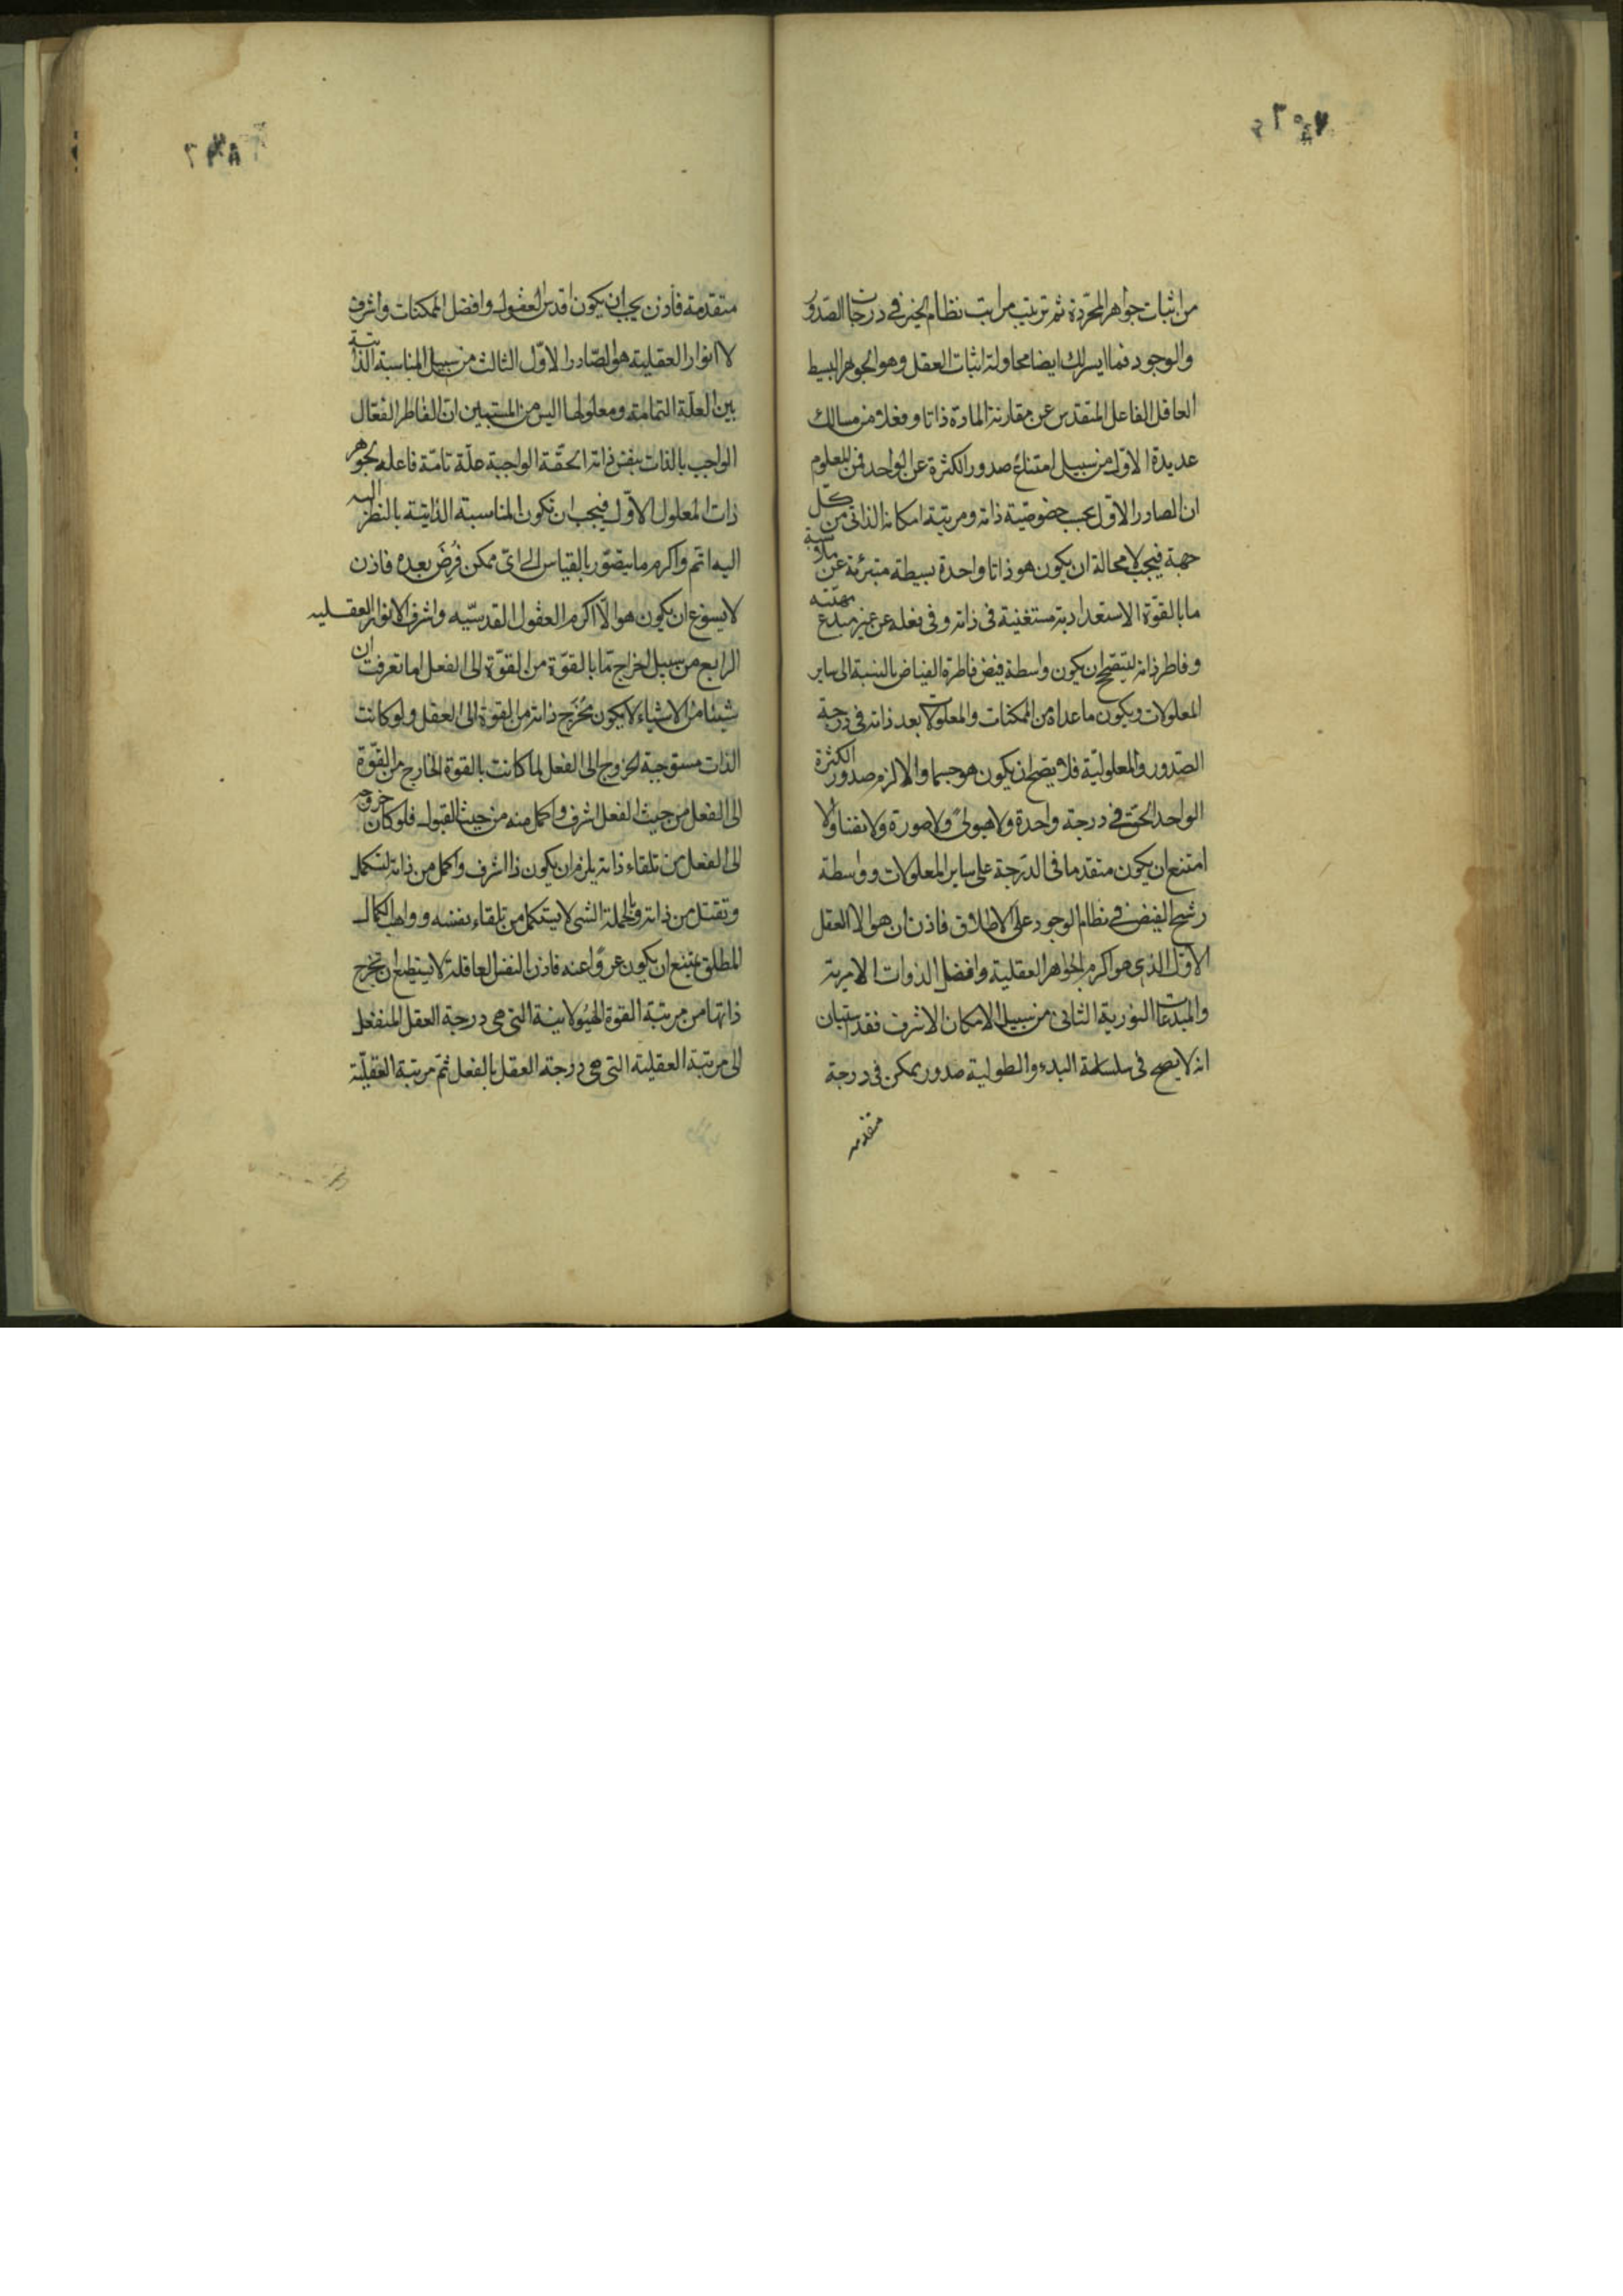 من اثبات جواهر المجردة ثم ترتيب مراتب نظام الخير فى درجات الصدور
والوجود فما ايسر لك ايضا محاولة اثبات العقل وهو الجوهر البسيط
العاقل الفاعل المتقدس عن مقارنة المادة ذاتا وفعلا من مسالك
عديدة الاول من سبيل امتناع صدور الكثرة عن الواحد فمن المعلوم
ان الصادر الاول بحسب خصوصية ذاته ومرتبة امكانه الذاتى من كل
جهة فيجب لا محالة ان يكون هو ذاتا واحدة بسيطة متبرئة عن ملابسة
ما بالقوة الاستعدادية مستغنية فى ذاته وفى فعله عن غير مبدع مهيته
وفاطر ذاته ليتصحح ان يكون واسطة فيض فاطره الفياض بالنسبة الى ساير
المعلولات ويكون ما عداه من الممكنات والمعلولات بعد ذاته فى درجة
الصدور والمعلولية فلا يصح ان يكون هو جسما والا لزم صدور الكثرة
الواحد الحق فى درجة واحدة ولا هيولى ولا صورة ولا نفسا والا
امتنع ان يكون متقدما فى الدرجة على ساير المعلولات وواسطة
رشح الفيض فى نظام الوجود على الاطلاق فاذن ان هو الا العقل
الاول الذى هو اكرم الجواهر العقلية وافضل الذوات الامرية
والمبدعات النورية الثانى من سبيل الامكان الاشرف فقد استبان
انه لا يصح فى سلسلة البدء والطولية صدور ممكن فى درجة
متقدمه
متقدمة فاذن يجب ان يكون اقدس العقول وافضل الممكنات واشرف
لا انوار العقلية هو الصادر الاول الثالث من سبيل المناسبة الذاتية
بين العلة التمامة ومعلولها اليس من المستبين ان الفاطر الفعال
الواجب بالذات بنفس ذاته الحقة الواجبة علة تامة فاعله بجوهر
ذات المعلول الاول فيجب ان تكون المناسبة الذاتية بالنظر اليه
اليه اتم واكرم ما يتصور بالقياس الى اى ممكن فُرِضَ بعده فاذن
لا يسوغ ان يكون هو الا اكرم العقول القدسيه واشرف الانوار العقليه
الرابع من سبيل اخراج ما بالقوة من القوة الى الفعل اما تعرفت ان
شيئا من الاشياء لا يكون مُخرِج ذاته من القوة الى العقل ولو كانت
الذات مستوجبة لخروج الى الفعل لما كانت بالقوة الخارج من القوة
الى الفعل من حيث الفعل اشرف واكمل منه من حيث القبول فلو كان خروجه
الى الفعل من تلقاء ذاته يلزم ان يكون ذا اشرف واكمل من ذاته لتكمل
وتقبل من ذاته وبالجملة الشى لا يستكمل من تلقاء نفسه وواهب الكمال
المطلق يمتنع ان يكون عروا عنه فاذن النفس العاقلة لا يستطيع ان تخرج
ذاتها من مرتبة القوة الهيولانية التى هى درجة العقل المنفعل
الى مرتبة العقلية التى هى درجة العقل بالفعل ثم مرتبة العقلية